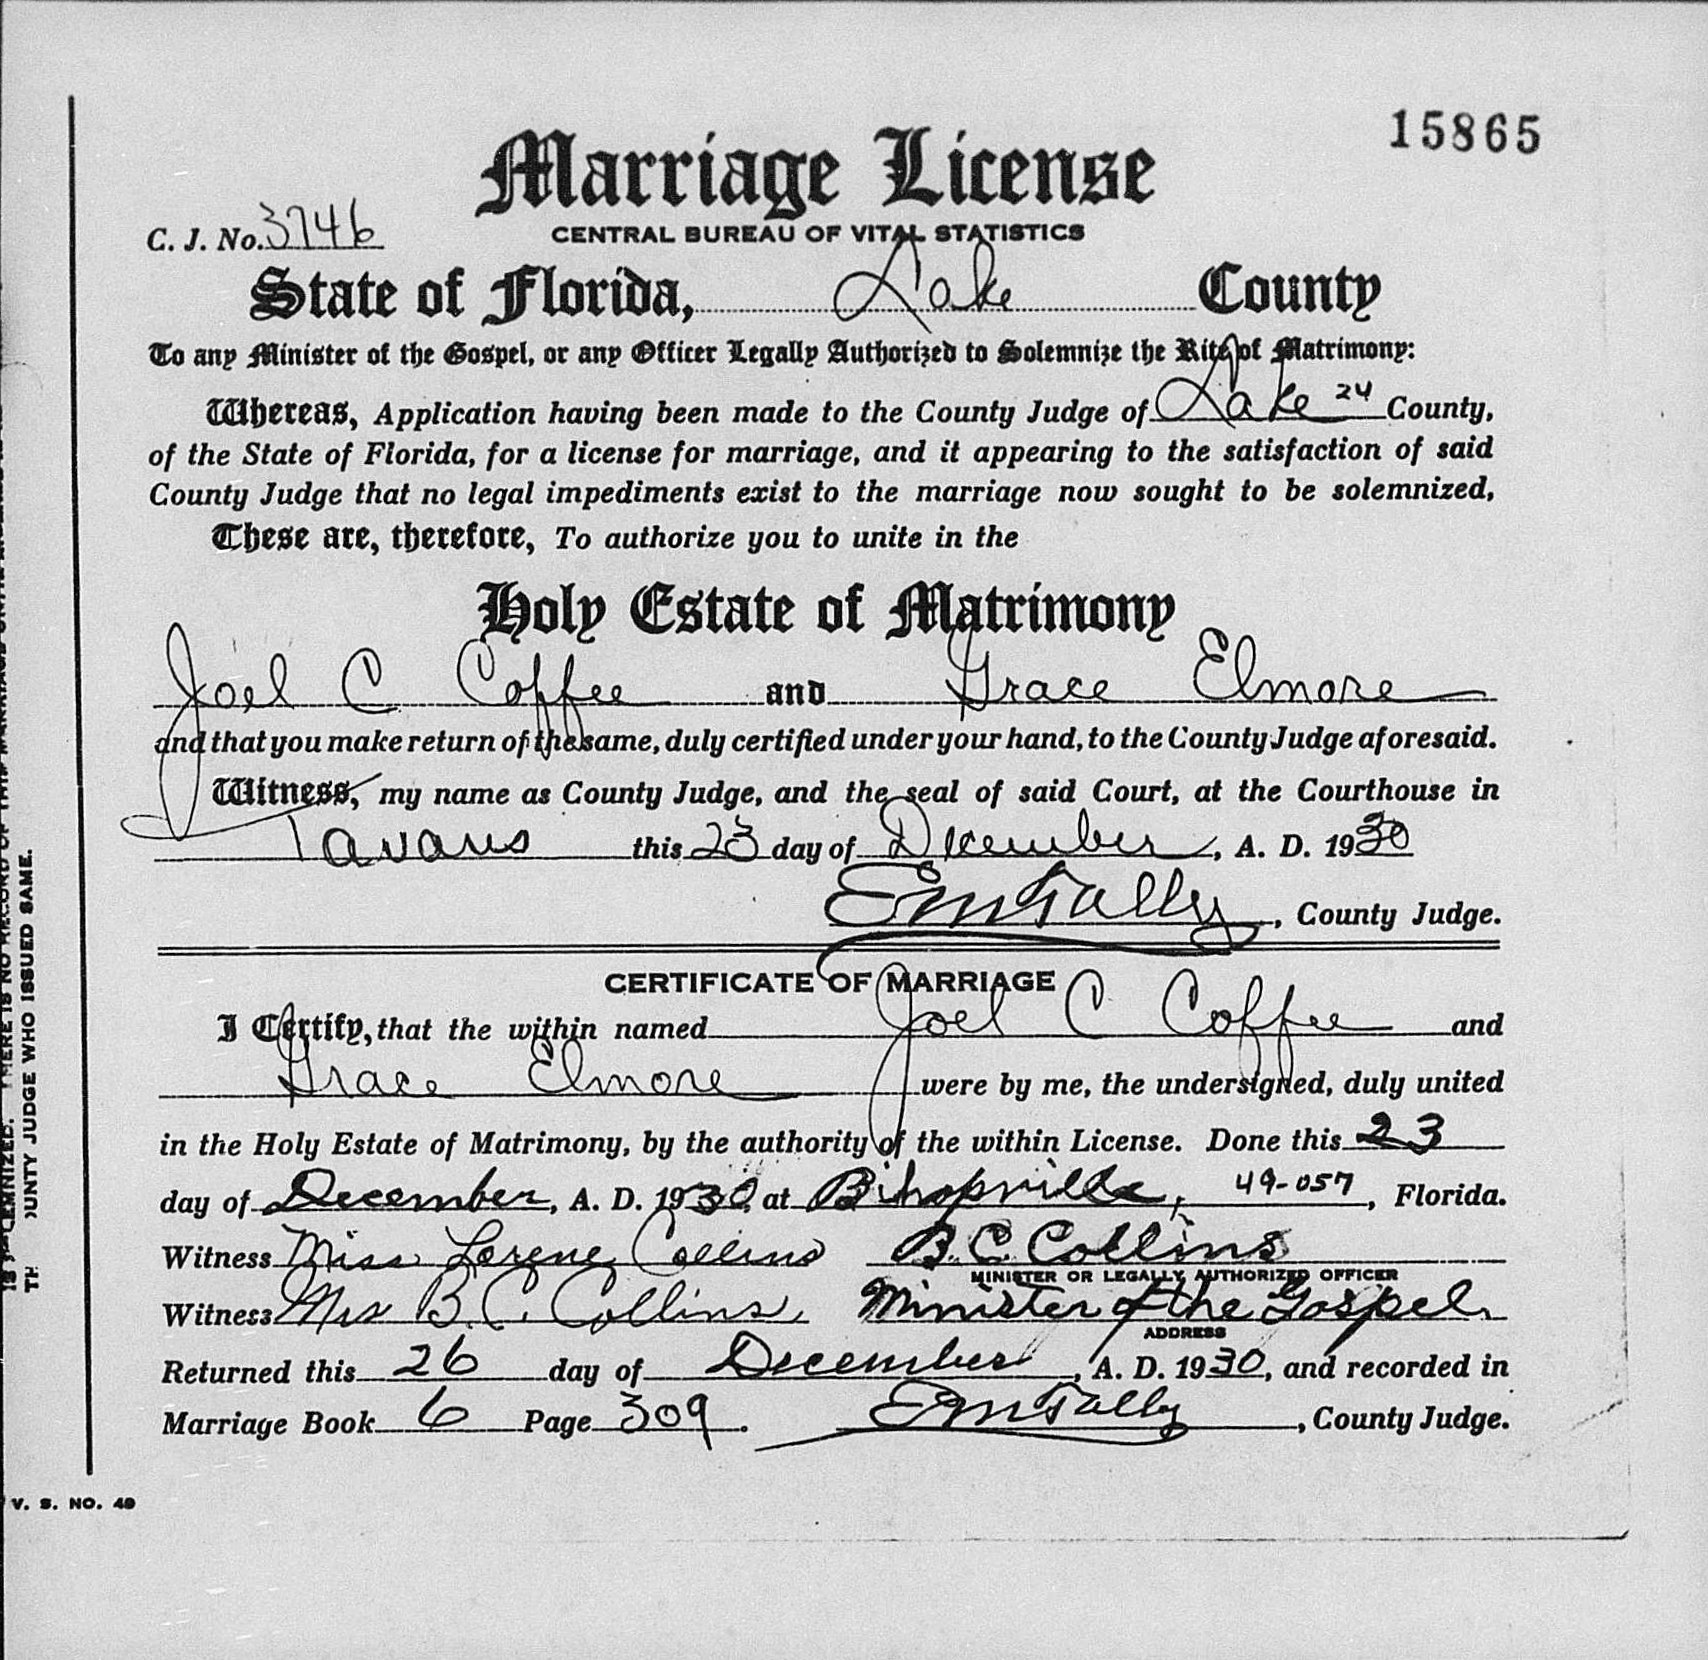 15865
Marriage License
C. J. No. 3746
CENTRAL BUREAU OF VITAL STATISTICS
State of Florida, Lake County
To any Minister of the Gospel, or any Officer Legally Authorized to Solemnize the Rite of Matrimony:
Whereas, Application having been made to the County Judge of Lake 24 County,
of the State of Florida, for a license for marriage, and it appearing to the satisfaction of said
County Judge that no legal impediments exist to the marriage now sought to be solemnized,
These are, therefore, To authorize you to unite in the
Holy Estate of Matrimony
Joel C Coffee and Grace Elmore
and that you make return of the same, duly certified under your hand, to the County Judge aforesaid.
Witness, my name as County Judge, and the seal of said Court, at the Courthouse in
Tavares this 23 day of December, A. D. 1930
, County Judge.
CERTIFICATE OF MARRIAGE
I Certify, that the within named Joel C Coffee and
Grace Elmore were by me, the undersigned, duly united
in the Holy Estate of Matrimony, by the authority of the within License. Done this 23
day of December, A. D. 1930 at 49-057, Florida.
Witness Miss Lorene Collins B. C. Collins
MINISTER OR LEGALLY AUTHORIZED OFFICER
Witness Mrs B. C. Collins, Minister of the Gospel.
ADDRESS
Returned this 26 day of December, A. D. 1930, and recorded in
Marriage Book 6 Page 309. , County Judge.
COUNTY JUDGE WHO ISSUED SAME.
V. S. NO. 49